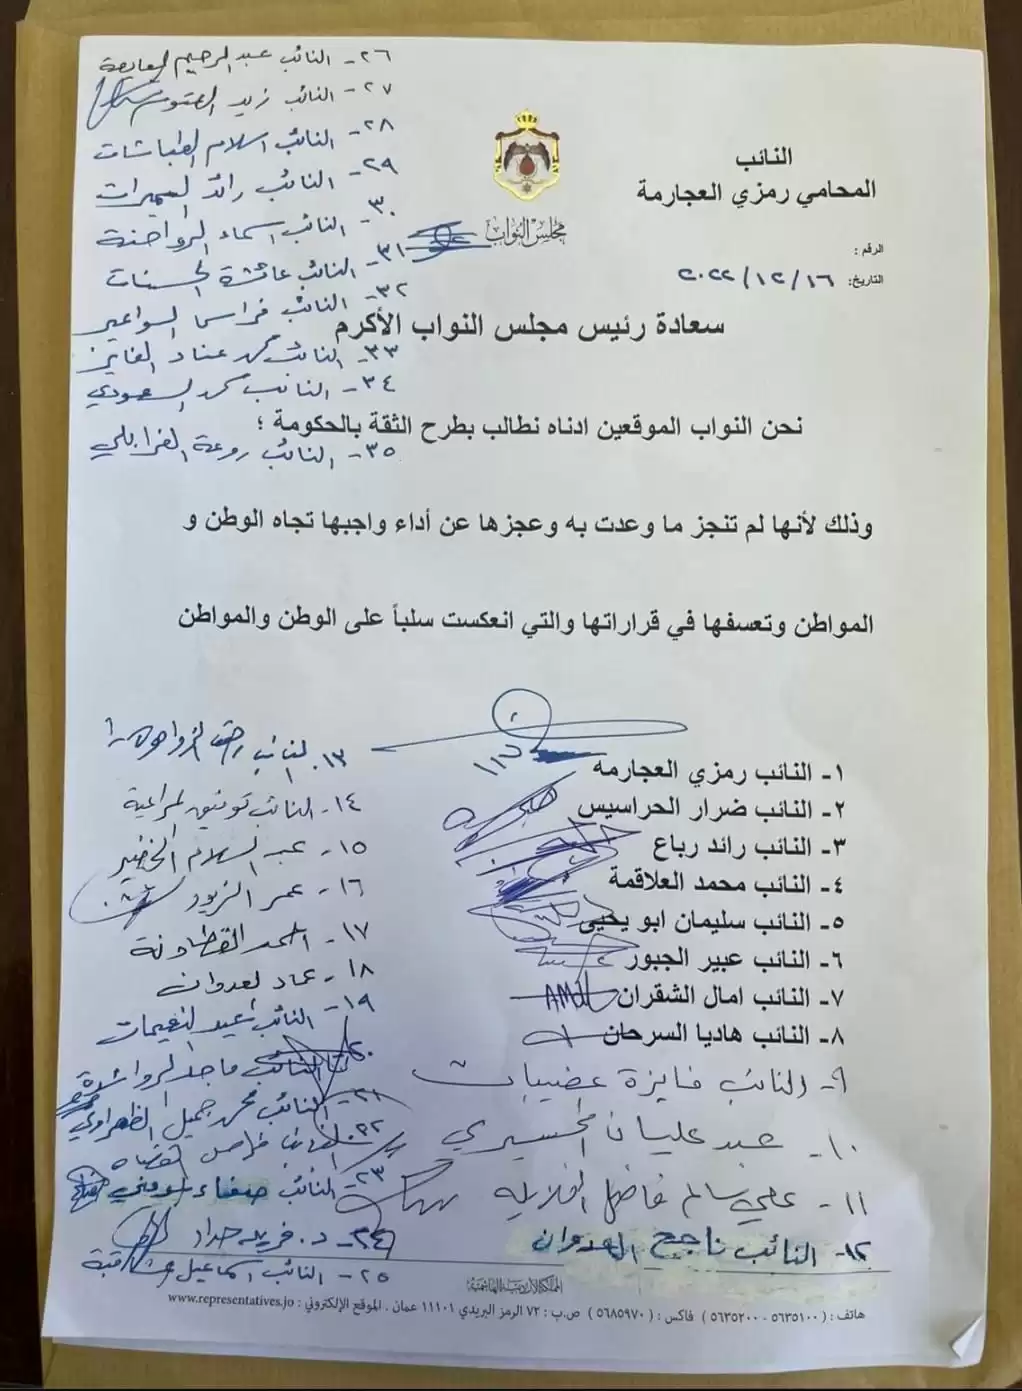 النائب
المحامي رمزي العجارمة
مجلس النواب
الرقم :
التاريخ: ٢٠٢٢/١٢/١٦
سعادة رئيس مجلس النواب الأكرم
نحن النواب الموقعين ادناه نطالب بطرح الثقة بالحكومة ؛
وذلك لأنها لم تنجز ما وعدت به وعجزها عن أداء واجبها تجاه الوطن و
المواطن وتعسفها في قراراتها والتي انعكست سلباً على الوطن والمواطن
١- النائب رمزي العجارمه
٢- النائب ضرار الحراسيس
٣- النائب رائد رباع
٤- النائب محمد العلاقمة
٥- النائب سليمان ابو يحيى
٦- النائب عبير الجبور
٧- النائب امال الشقران
٨- النائب هاديا السرحان
٩- النائب فايزة عضيبات
١٠- عبد عليان المحسيري
١١- علي سالم فاضل الغلاييه
١٢- النائب ناجح العدوان
١٣. النائب الزواهره
١٤- النائب توفيق المراعية
١٥- عبد السلام الخضير
١٦- عمر الزيود
١٧- احمد القطاونة
١٨- عماد العدوان
١٩- النائب عيد النعيمات
٢٠- النائب ماجد الرواشدة
٢١- النائب محمد جميل الظهراوي
٢٢- النائب فراس القضاه
٢٣- النائب صفاء المومني
٢٤- د. فريد حداد
٢٥- النائب اسماعيل مشاقبة
٢٦- النائب عبد الرحيم المعايعة
٢٧- النائب زيد العتوم
٢٨- النائب اسلام الطباشات
٢٩- النائب رائد السميرات
٣٠- النائب اسماء الرواحنة
٣١- النائب عائشة الحسنات
٣٢- النائب فراس السواعير
٣٣- النائب محمد عناد الفايز
٣٤- النائب محمد السعودي
٣٥- النائب روعة الغرابلي
المملكة الأردنية الهاشمية
هاتف : ( ٥٦٣٥١٠٠ - ٥٦٣٥٢٠٠ ) فاكس : ( ٥٦٨٥٩٧٠ ) ص.ب : ٧٢ الرمز البريدي ١١١٠١ عمان . الموقع الإلكتروني : www.representatives.jo